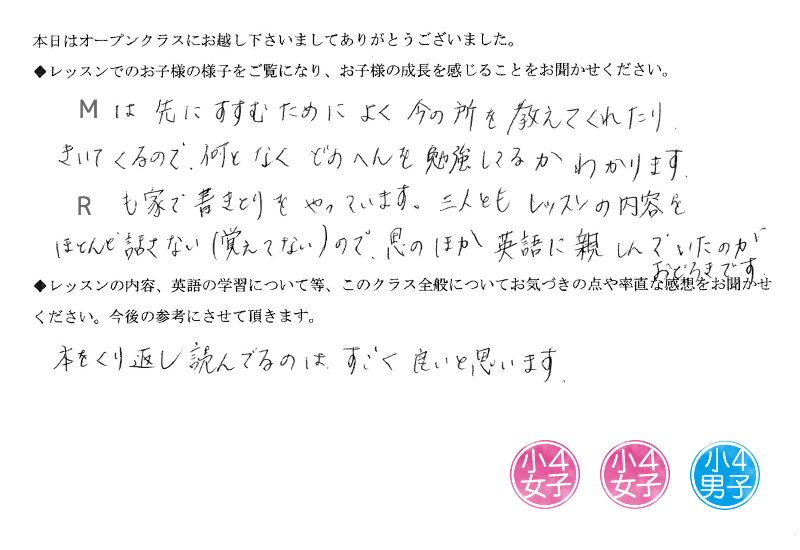 本日はオープンクラスにお越し下さいましてありがとうございました。
◆レッスンでのお子様の様子をご覧になり、お子様の成長を感じることをお聞かせください。
M は 先にすすむためによく 今の所を教えてくれたり、
きいてくるので、何となく どのへんを勉強してるか わかります。
R も家で書きとりをやっています。三人とも レッスンの内容を
ほとんど話さない(覚えてない)ので、思のほか 英語に親しんでいたのが
おどろきです。
◆レッスンの内容、英語の学習について等、このクラス全般についてお気づきの点や率直な感想をお聞かせ
ください。今後の参考にさせて頂きます。
本をくり返し読んでるのは、すごく良いと思います。
小4
女子
小4
女子
小4
男子